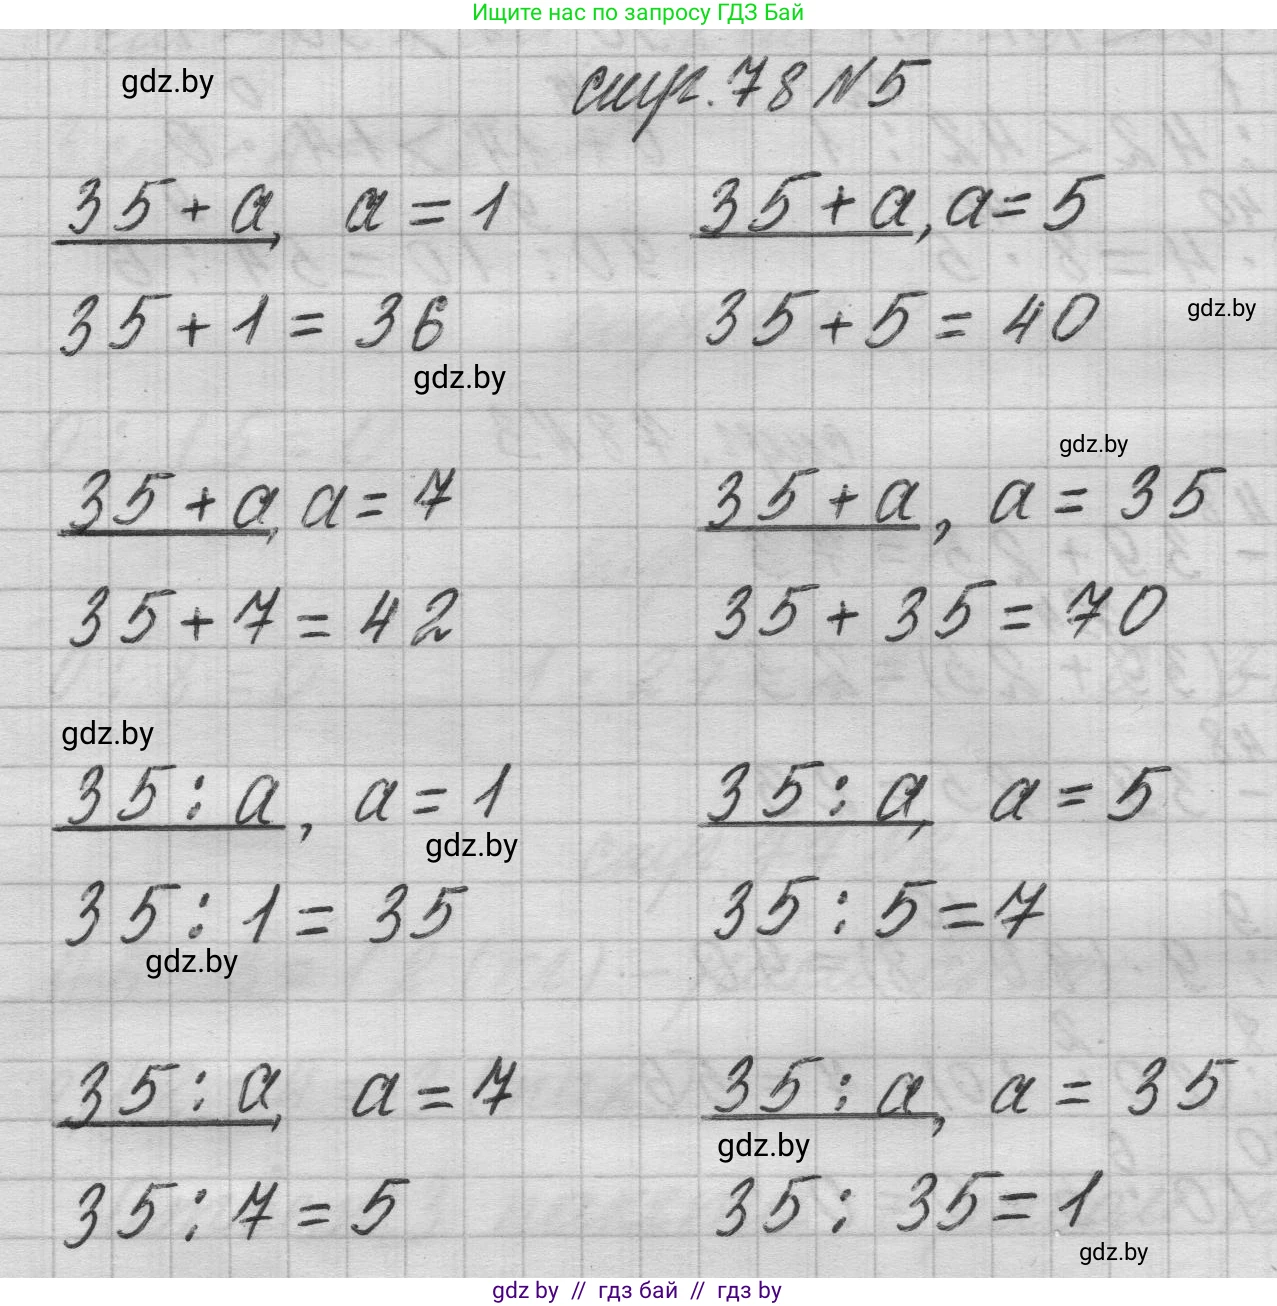 Ищите нас по запросу ГДЗ Бай
gdz.by
стр. 78 №5
35 + a, a = 1
35 + a, a = 5
35 + 1 = 36
35 + 5 = 40
gdz.by
gdz.by
gdz.by
35 + a, a = 7
35 + a, a = 35
35 + 7 = 42
35 + 35 = 70
gdz.by
35 : a, a = 1
35 : a, a = 5
gdz.by
35 : 1 = 35
35 : 5 = 7
gdz.by
35 : a, a = 7
35 : a, a = 35
gdz.by
35 : 7 = 5
35 : 35 = 1
gdz.by
gdz by // гдз бай // гдз by